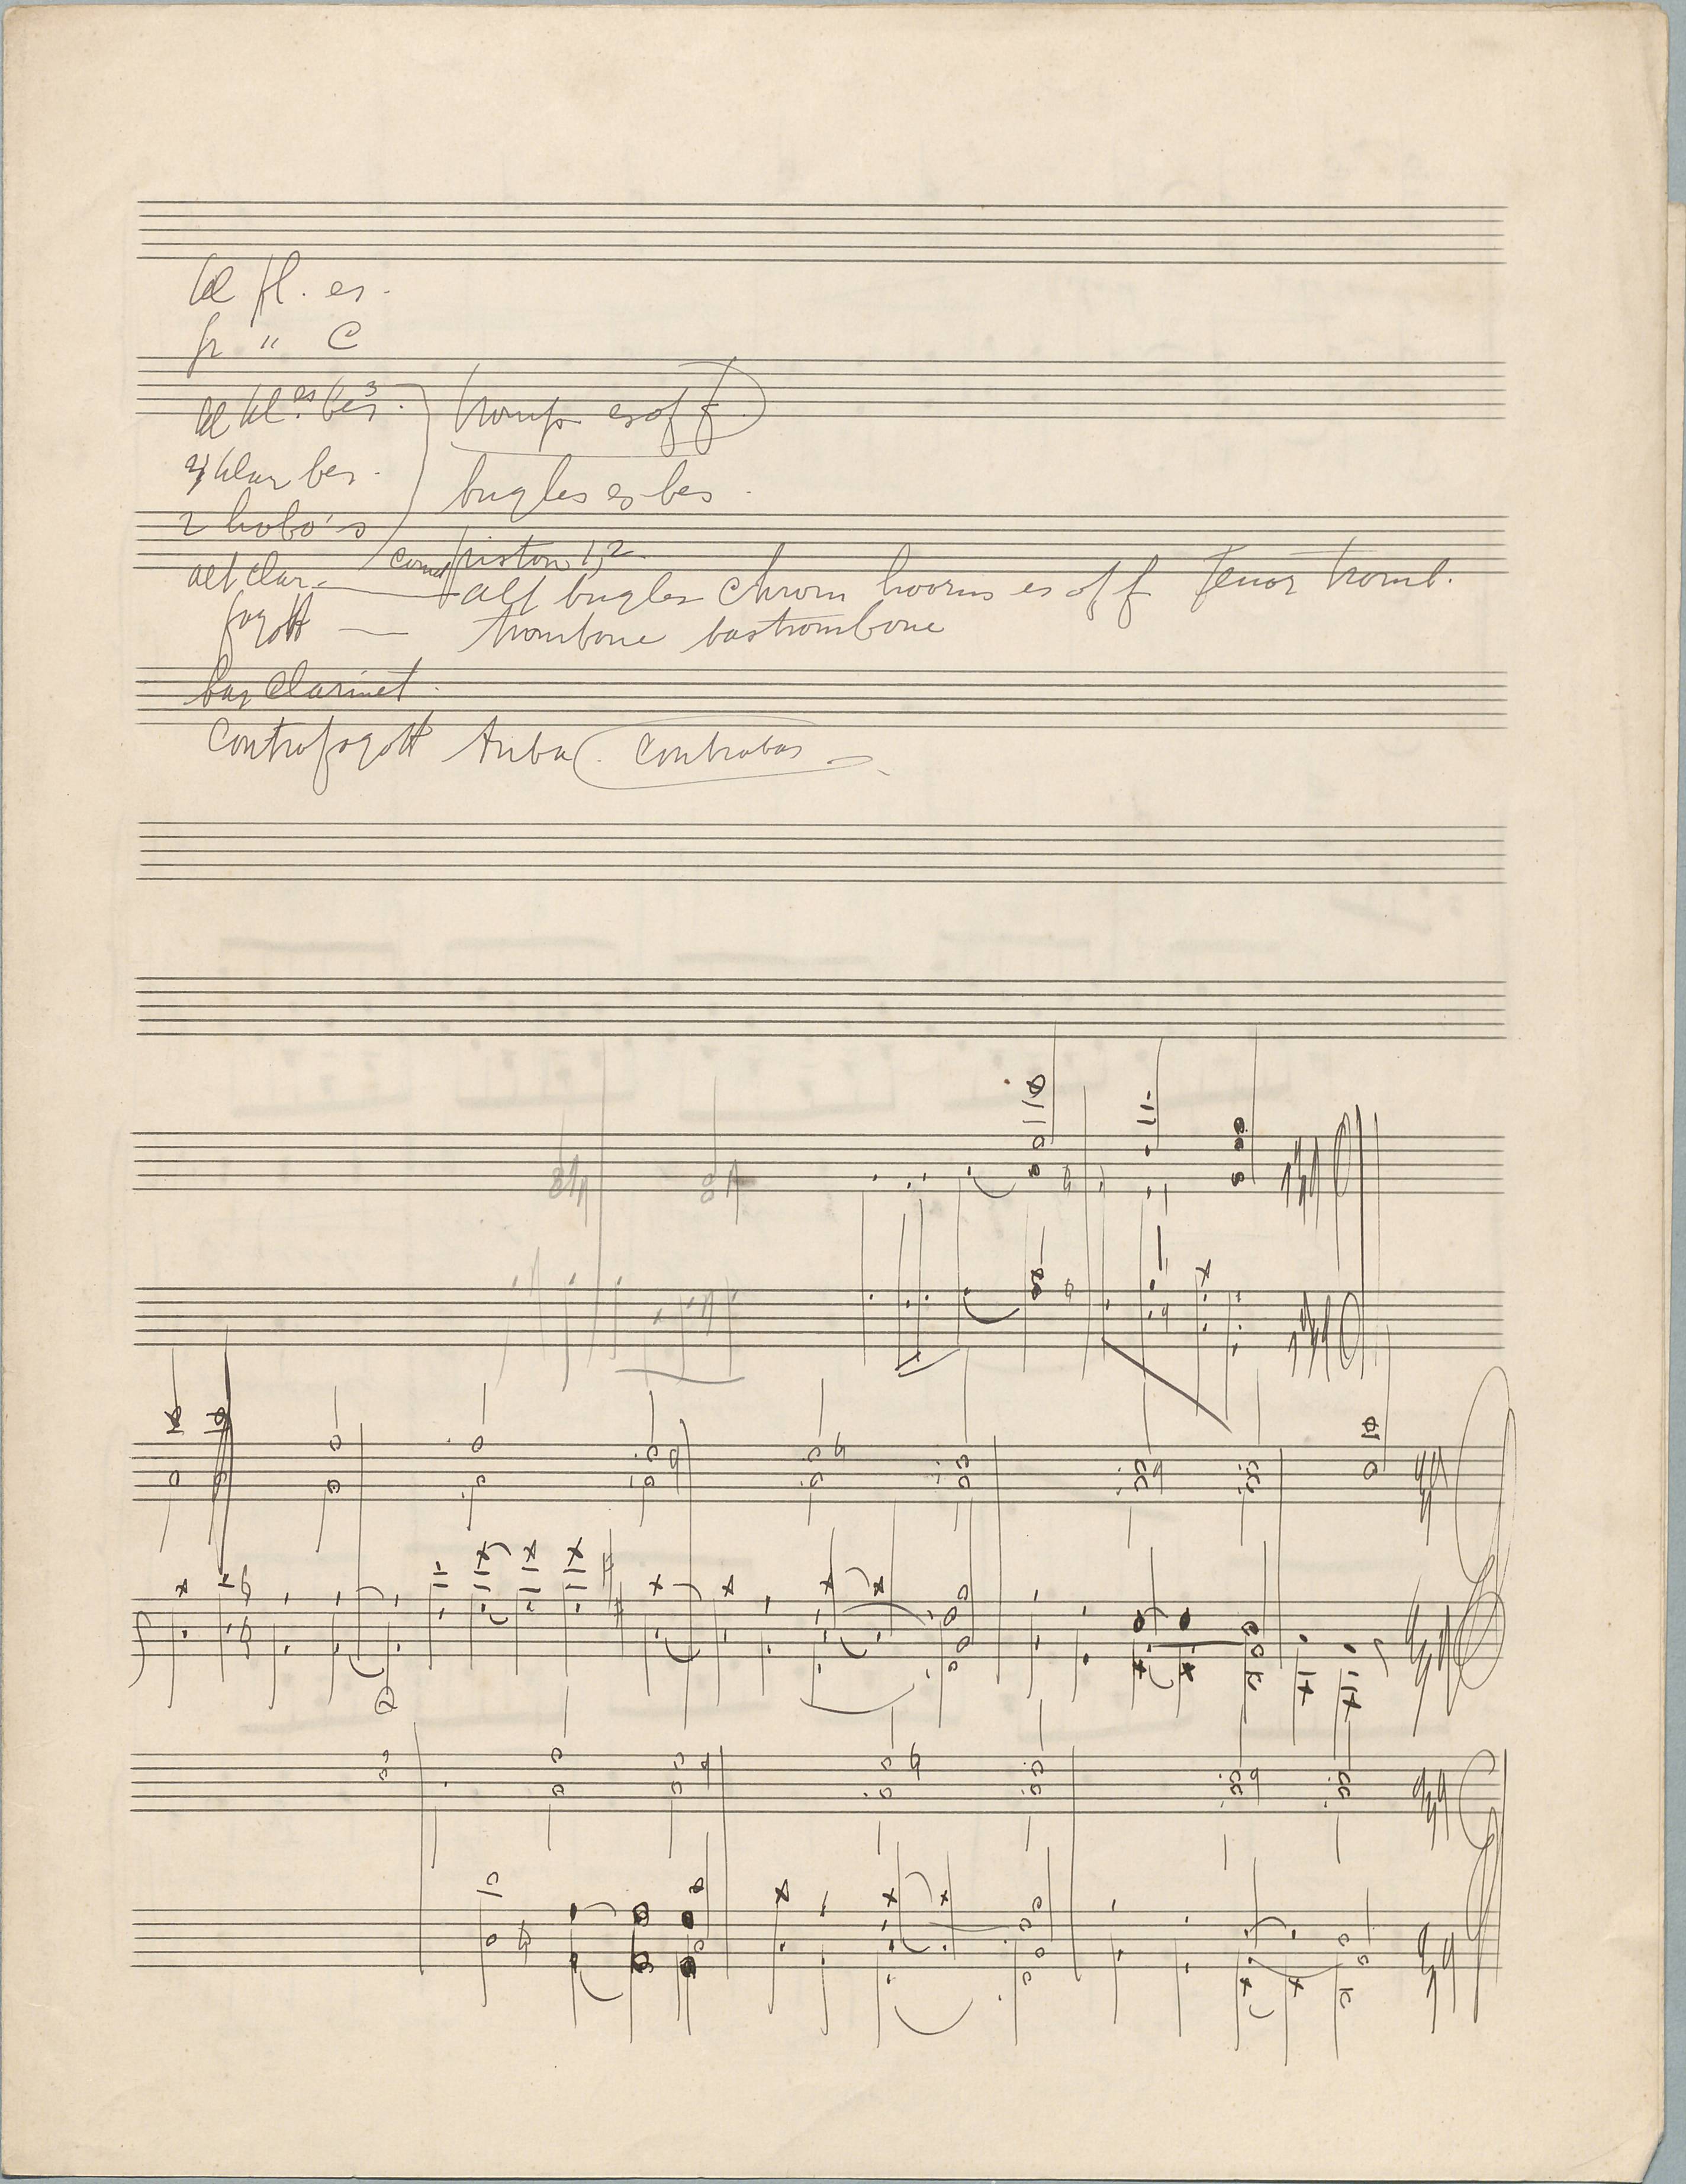 kl fl. es.
gr " C
kl kl. es bes 3. tromp es of f
4 klar bes. bugles es bes.
2 hobo's
cornet piston 1, 2
alt clar. — alt bugles chrom hoorns es of f Tenor tromb.
fagott — trombone bastrombone
bas clarinet.
Contrafagott tuba (contrabas